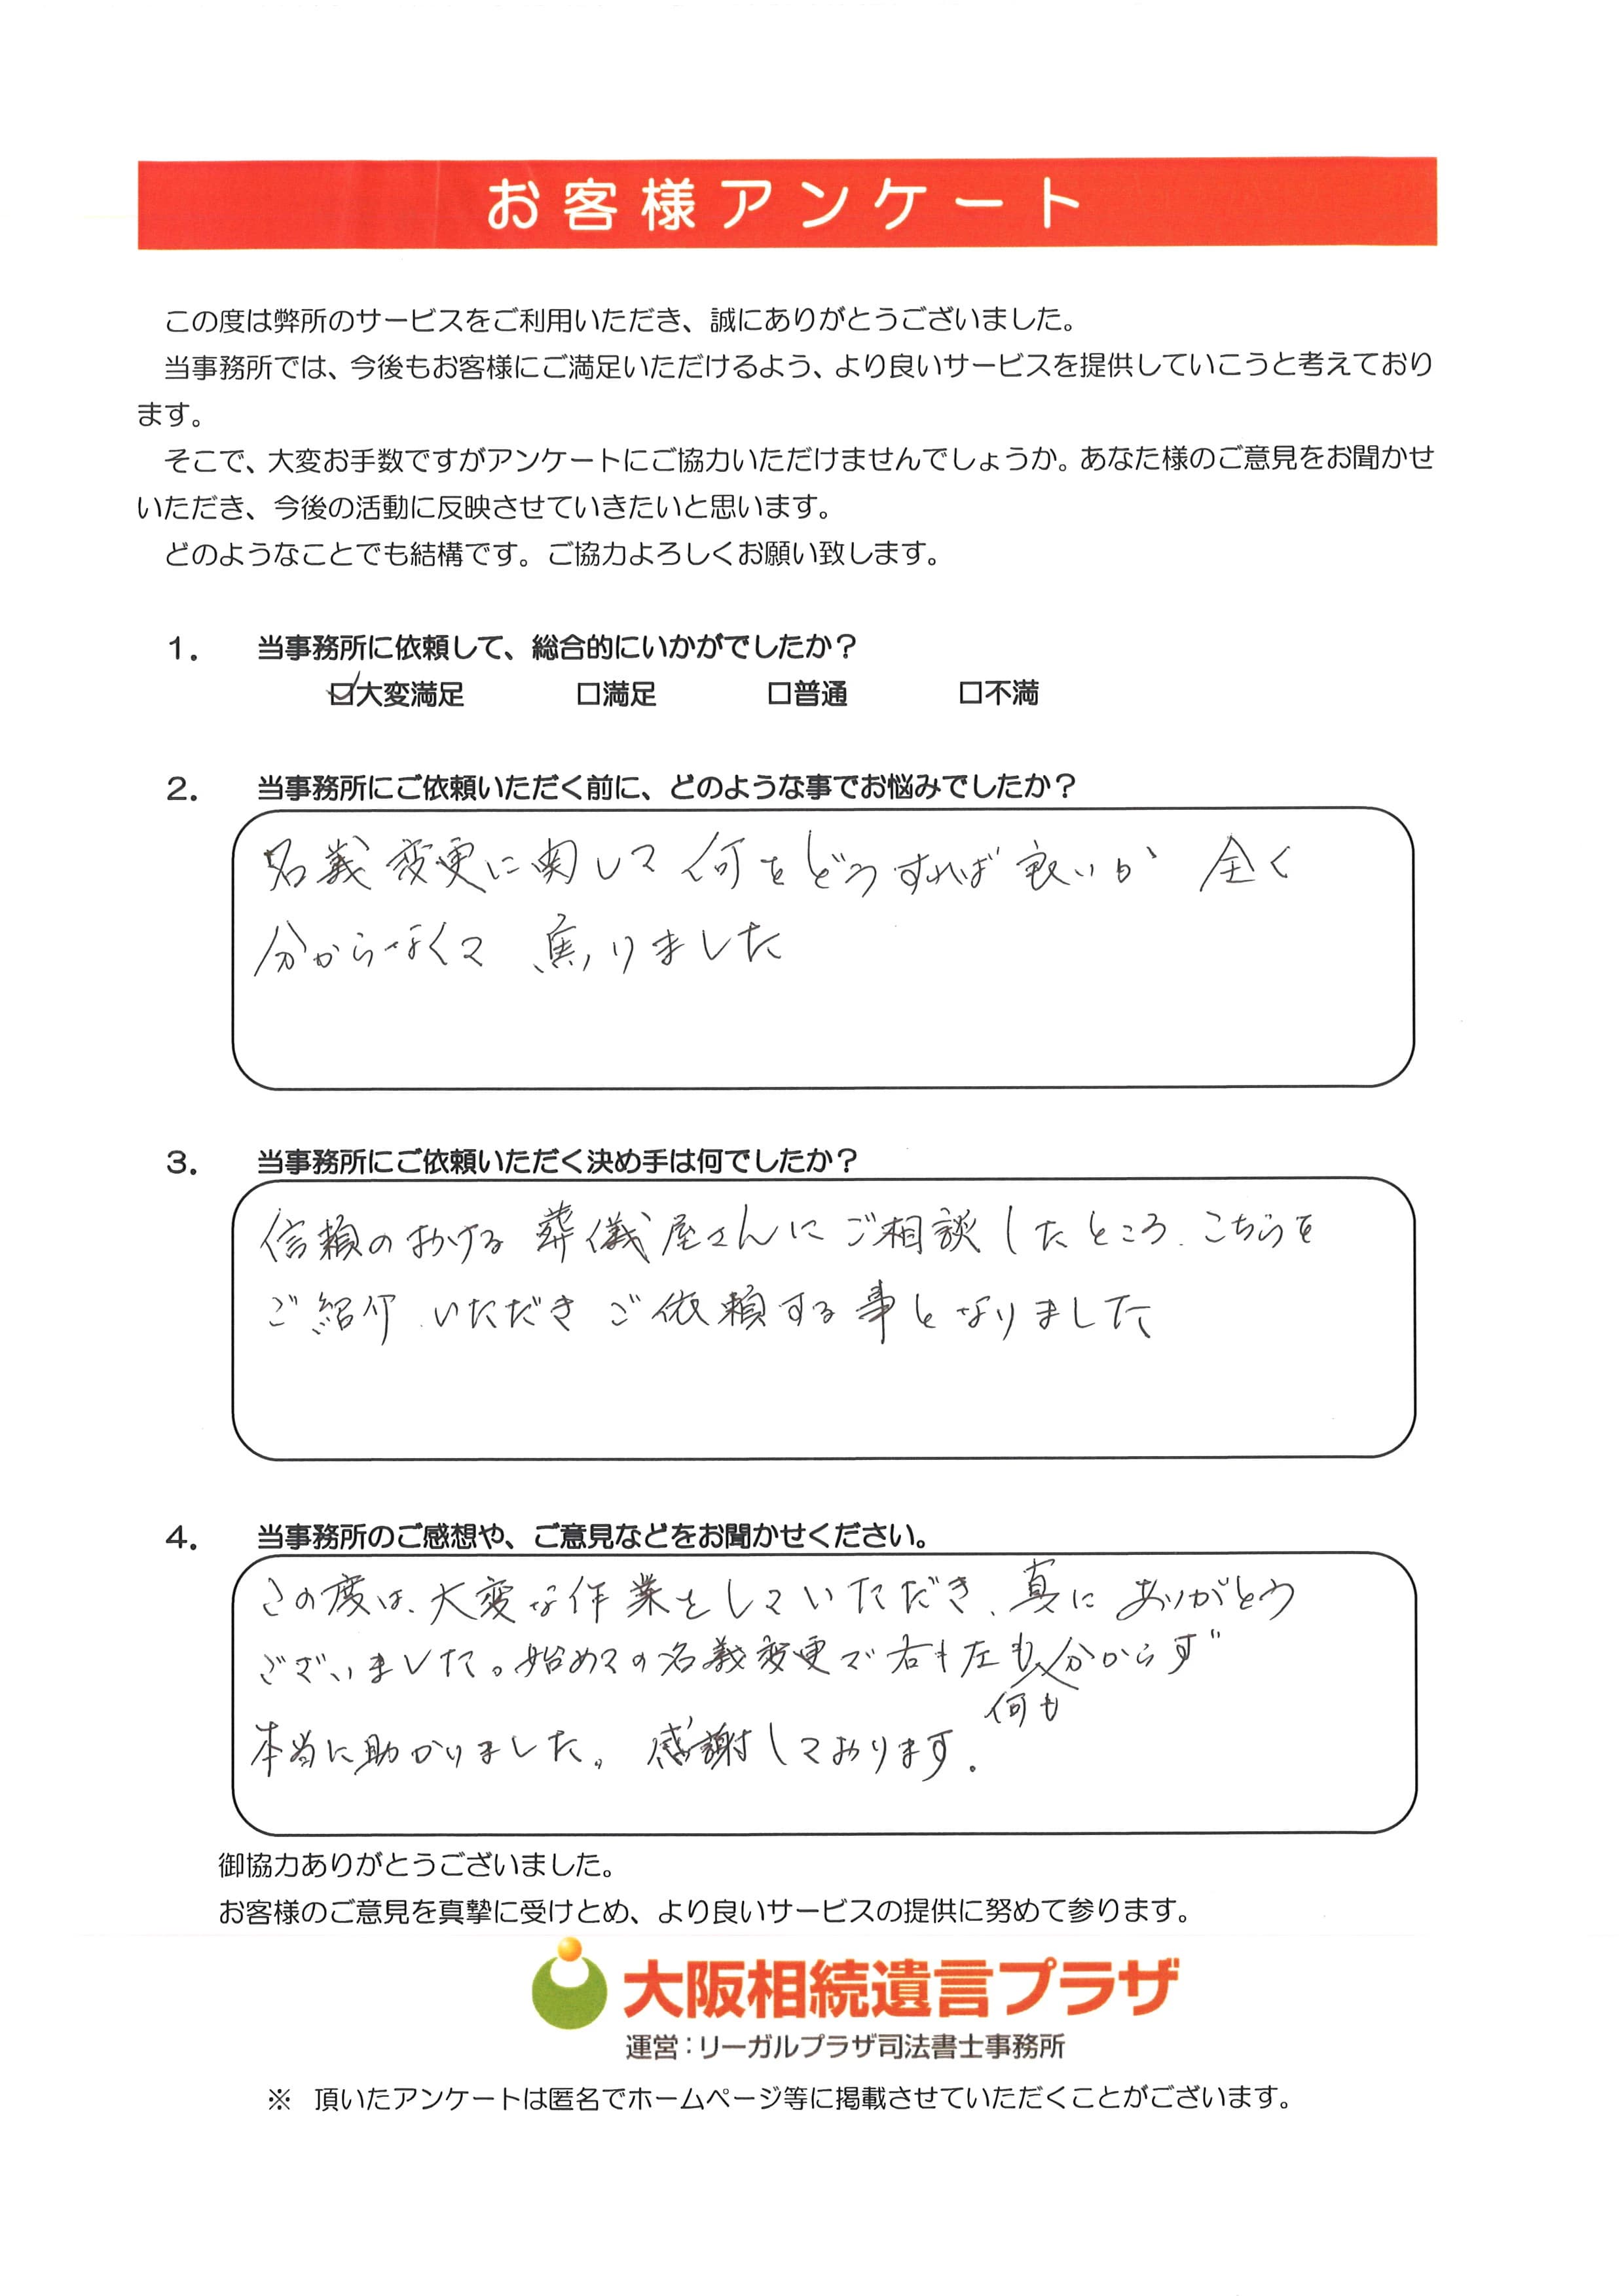 お客様アンケート
この度は弊所のサービスをご利用いただき、誠にありがとうございました。
当事務所では、今後もお客様にご満足いただけるよう、より良いサービスを提供していこうと考えており
ます。
そこで、大変お手数ですがアンケートにご協力いただけませんでしょうか。あなた様のご意見をお聞かせ
いただき、今後の活動に反映させていきたいと思います。
どのようなことでも結構です。ご協力よろしくお願い致します。
1. 当事務所に依頼して、総合的にいかがでしたか？
☑大変満足 □満足 □普通 □不満
2. 当事務所にご依頼いただく前に、どのような事でお悩みでしたか？
名義変更に関して何をどうすれば良いか 全く
分からなくて 焦りました
3. 当事務所にご依頼いただく決め手は何でしたか？
信頼のおける 葬儀屋さんに ご相談したところ、こちらを
ご紹介 いただき ご依頼する事となりました
4. 当事務所のご感想や、ご意見などをお聞かせください。
この度は、大変な作業をしていただき、真に ありがとう
ございました。始めての名義変更で右も左も分からず
何も
本当に助かりました。 感謝しております。
御協力ありがとうございました。
お客様のご意見を真摯に受けとめ、より良いサービスの提供に努めて参ります。
大阪相続遺言プラザ
運営：リーガルプラザ司法書士事務所
※ 頂いたアンケートは匿名でホームページ等に掲載させていただくことがございます。